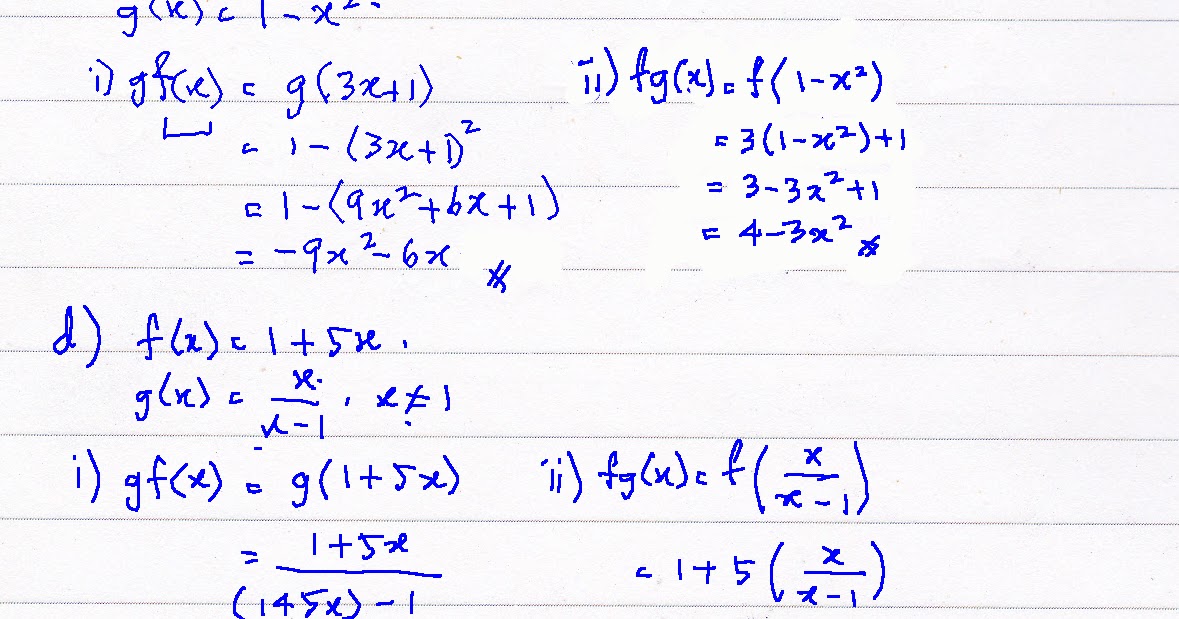 g(x) = 1 - x².
i) gf(x) = g(3x+1)
= 1 - (3x+1)²
= 1-(9x²+6x+1)
= -9x²-6x
ii) fg(x) = f(1-x²)
= 3(1-x²)+1
= 3-3x²+1
= 4-3x²
d) f(x) = 1+5x.
g(x) = x/(x-1), x≠1
i) gf(x) = g(1+5x)
= (1+5x)/((1+5x)-1)
ii) fg(x) = f(x/(x-1))
= 1+5(x/(x-1))